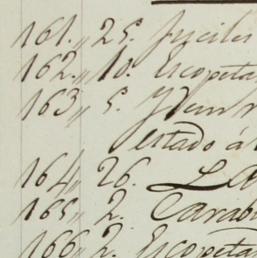 161.,, 25. fusiles
162.,, 10. Escopeta
163,, 5. Ydem
estado á
164,, 26.
165,, 2. Carab
166,, 2. Escopeta